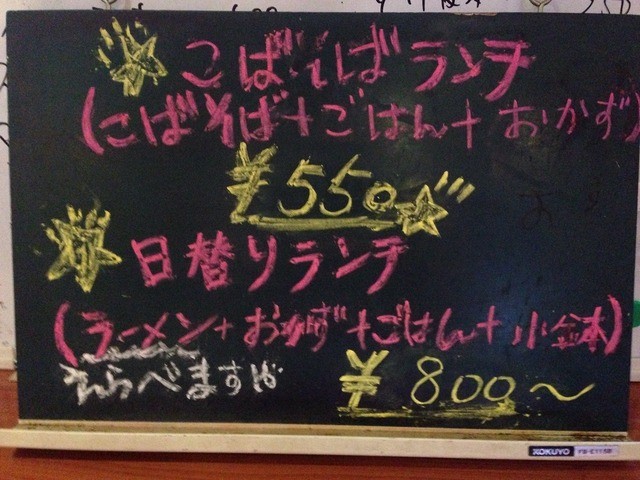 こばそばランチ
(こばそば+ごはん+おかず)
¥550
日替りランチ
(ラーメン+おかず+ごはん+小鉢)
えらべますよ
¥800~
KOKUYO